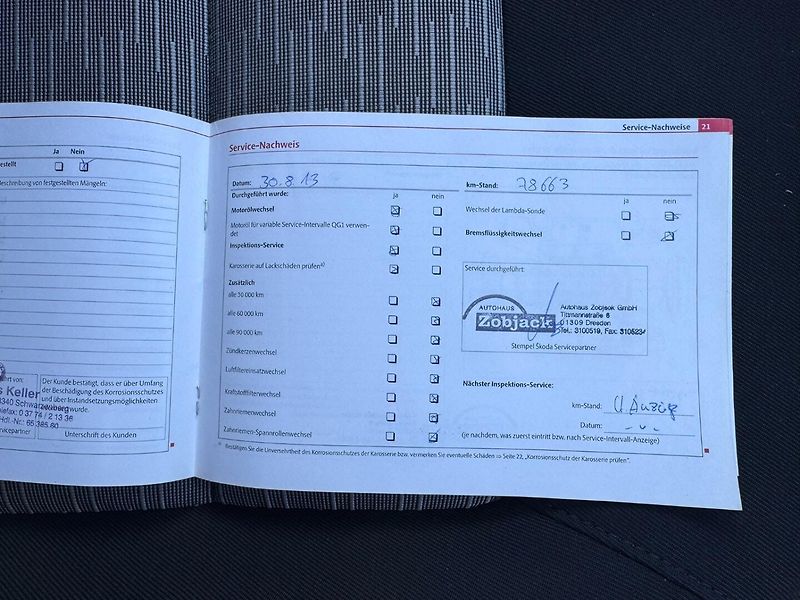 Ja Nein
estellt
Beschreibung von festgestellten Mängeln:
Der Kunde bestätigt, dass er über Umfang
der Beschädigung des Korrosionsschutzes
und über Instandsetzungsmöglichkeiten
wurde.
Unterschrift des Kunden
s Keller
Service-Nachweise 21
Service-Nachweis
Datum: 30.8.13
km-Stand: 78663
Durchgeführt wurde: ja nein
Motorölwechsel
Motoröl für variable Service-Intervalle QG1 verwen-
det
Inspektions-Service
Karosserie auf Lackschäden prüfen
Zusätzlich
alle 30 000 km
alle 60 000 km
alle 90 000 km
Zündkerzenwechsel
Luftfiltereinsatzwechsel
Kraftstofffilterwechsel
Zahnriemenwechsel
Zahnriemen-Spannrollenwechsel
ja nein
Wechsel der Lambda-Sonde
Bremsflüssigkeitswechsel
Service durchgeführt:
AUTOHAUS
Zobjack
Autohaus Zobjack GmbH
Tittmannstraße 6
01309 Dresden
Tel.: 3100519, Fax: 310523
Stempel Škoda Servicepartner
Nächster Inspektions-Service:
km-Stand:
Datum:
(je nachdem, was zuerst eintritt bzw. nach Service-Intervall-Anzeige)
Bestätigen Sie die Unversehrtheit des Korrosionsschutzes der Karosserie bzw. vermerken Sie eventuelle Schäden ⇒ Seite 22, „Korrosionsschutz der Karosserie prüfen“.